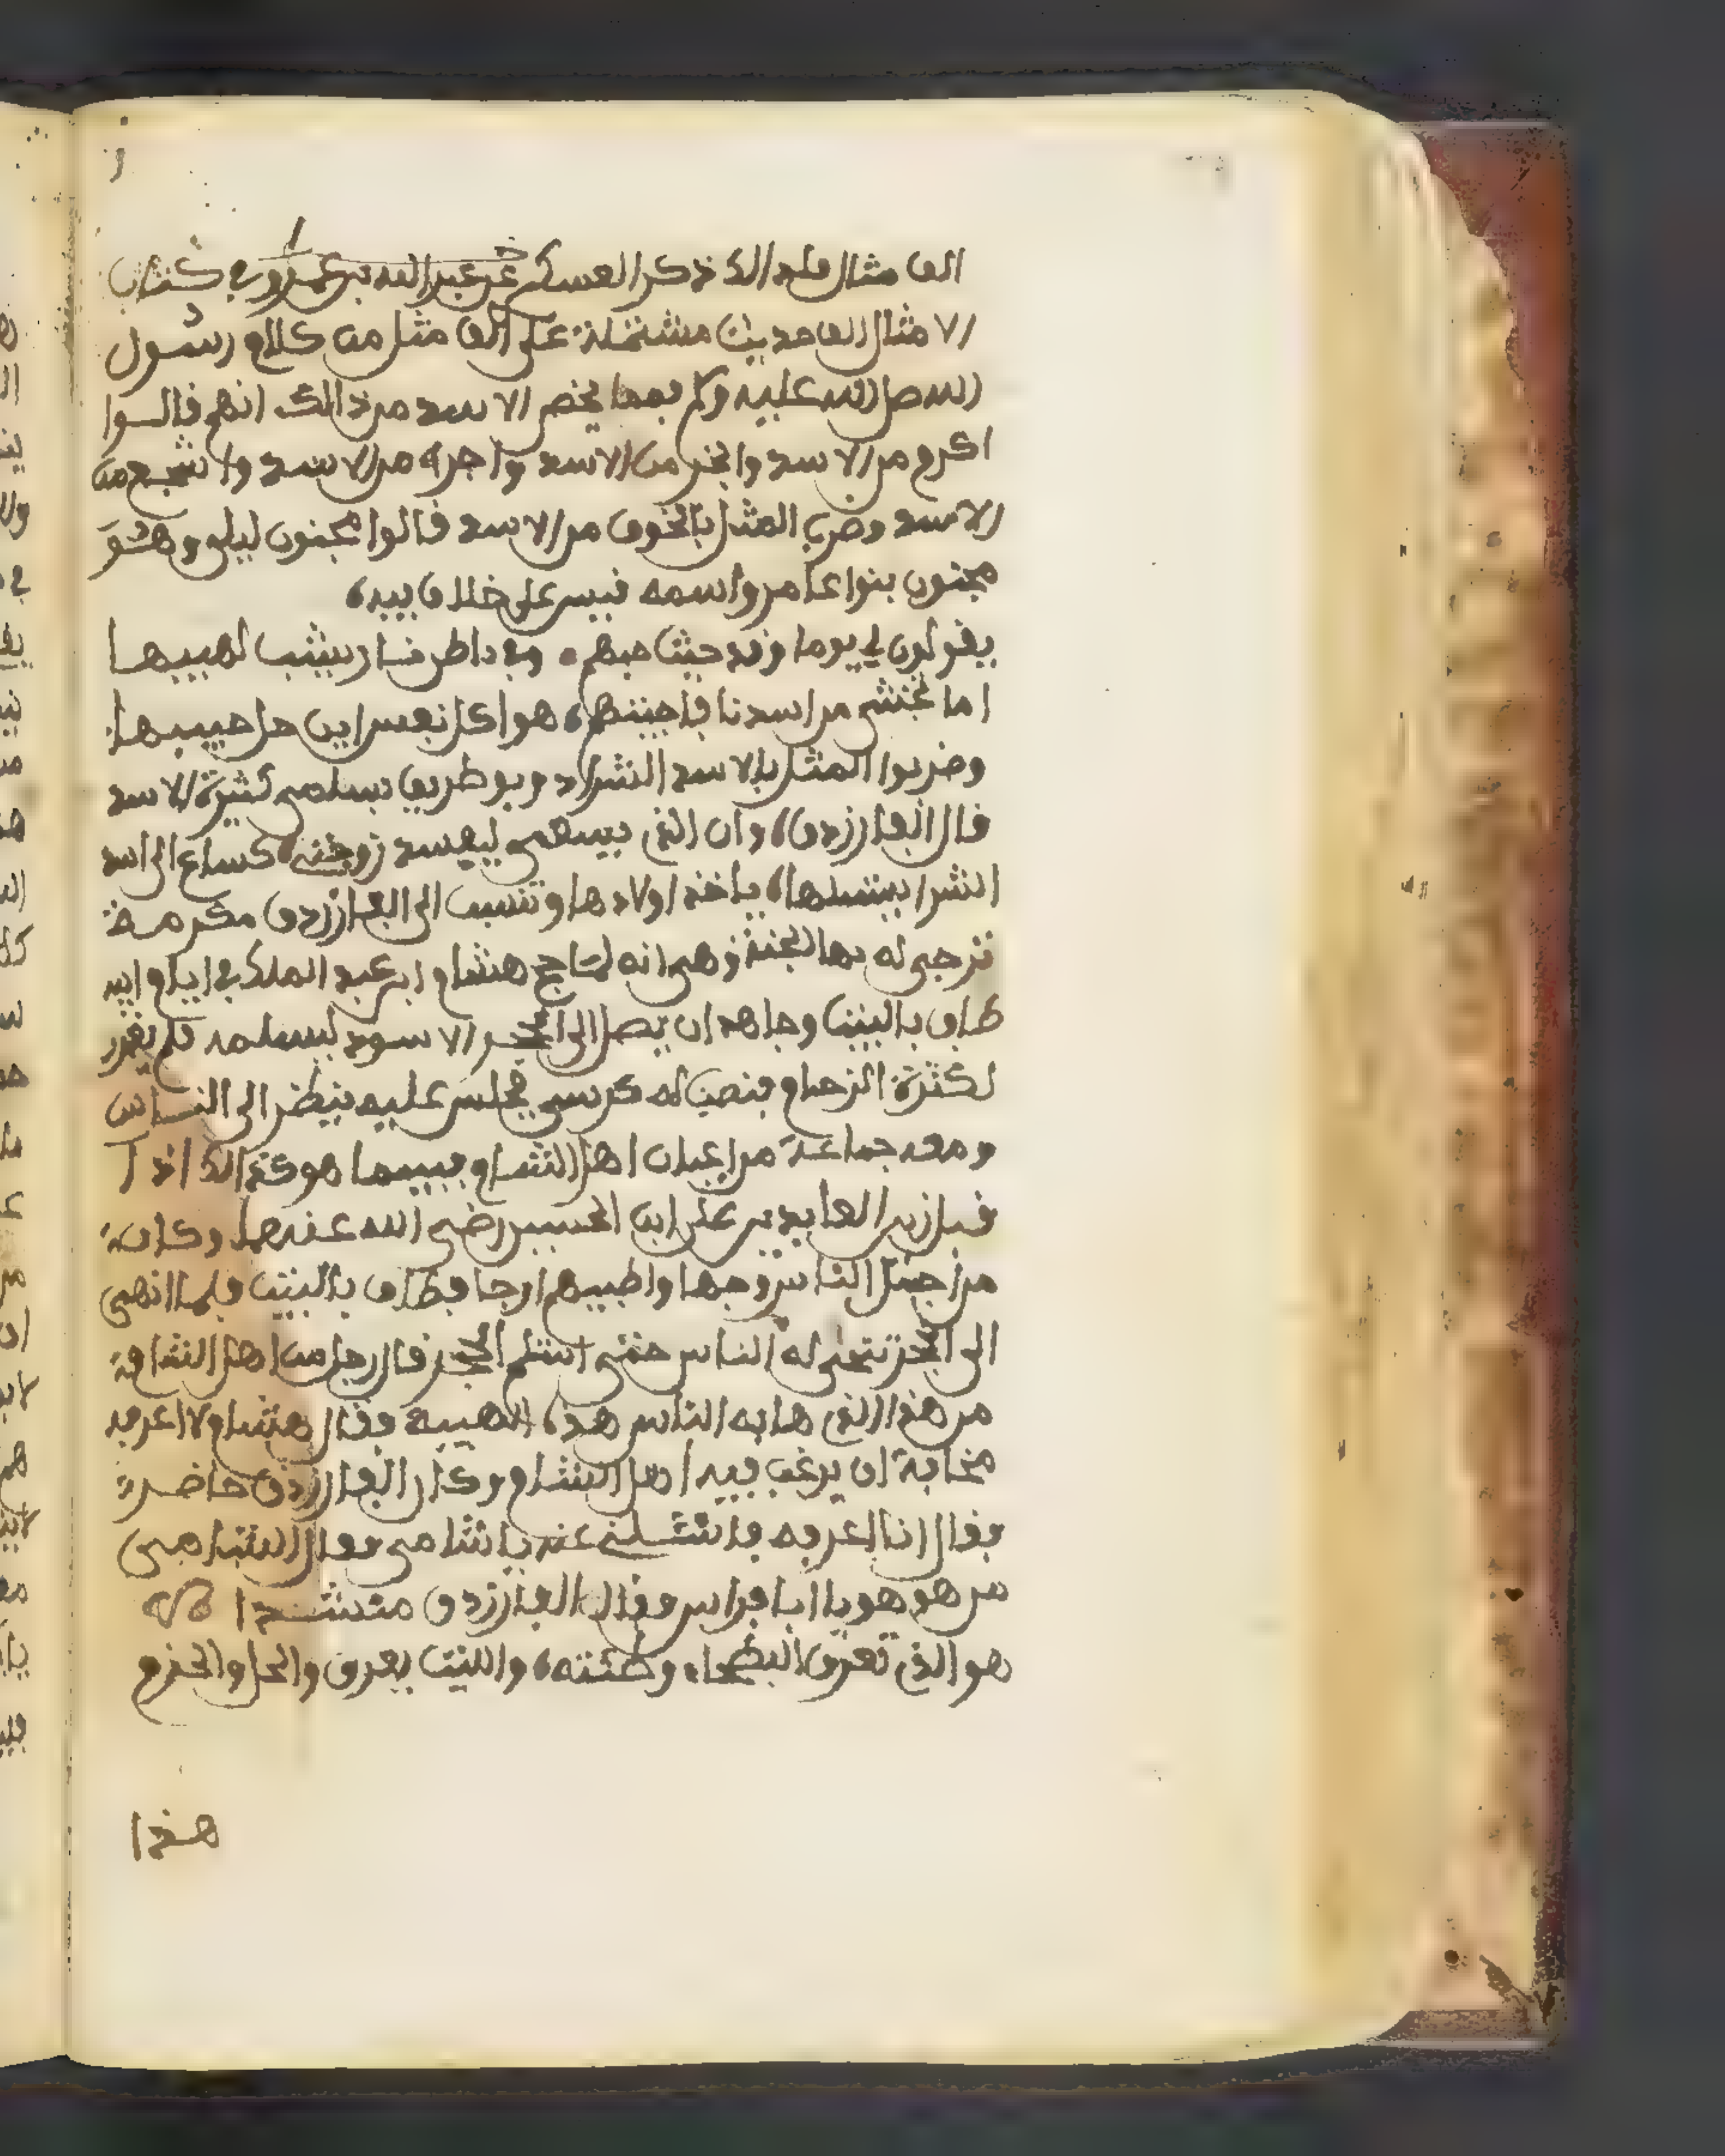 الف مثال فلهذا ذكر العسكري عن عبد الله بن عمرو في كتاب
الامثال الف حديث مشتملة على الف مثل من كلام رسول
الله صل الله عليه وسلم بمما يخص الاسد من ذالك انهم قالوا
اكرم من الاسد وابخر من الاسد واجره من الاسد واشجع من
الاسد وضرب المثل بالخوف من الاسد قالوا مجنون ليلى وهو
مجنون بنوا عامر واسمه قيس على خلاف بيه
يقولون لي يوما وقد جيت حبهم وفي باطن نار يشب لهيبها
اما تختشى من اسدنا فاجبتهم هوا كل نفس اين حل حبيبها
وضربوا المثل بالاسد الشراد وبو طريق بسلمى كثيرة الاسد
قال الفارزدق وان الذي يسعى ليفسد زوجتي كساع الى اسد
الشرا يبتسلها ياخذ اولادها وتنسب الى الفارزدق مكرمة
ترجى له بها الجنة وهى انه لما حج هشام ابن عبد الملك في ايام ابيه
طاف بالبيت وجاهد ان يصل الى الحجر الاسود ليسلمه فلم يقدر
لكثرة الزحام فنصب له كرسي فجلس عليه ينظر الى الناس
ومعه جماعة من اعيان اهل الشام فبيما هو كذالك اذا
قبل زين العابدين على ابن الحسين رضى الله عنهما وكان
من اجمل الناس وجها واطيبهم ارجا فطاف بالبيت فلما انهى
الى الحجر تنحى له الناس حتى استلم الحجر قال رجل من اهل الشام
من هذا الذي هابه الناس هذه الهيبه فقال هشام لا اعرفه
مخافة ان يرغب فيه اهل الشام وكان الفارزدق حاضر
فقال انا اعرفه فاسئلني عنه ياشامى فقال الشامى
من هو هو يا ابا فراس فقال الفارزدق منشدا
هو الذي تعرف البطحاء وطئته والبيت يعرف والحل والحرم
هذا